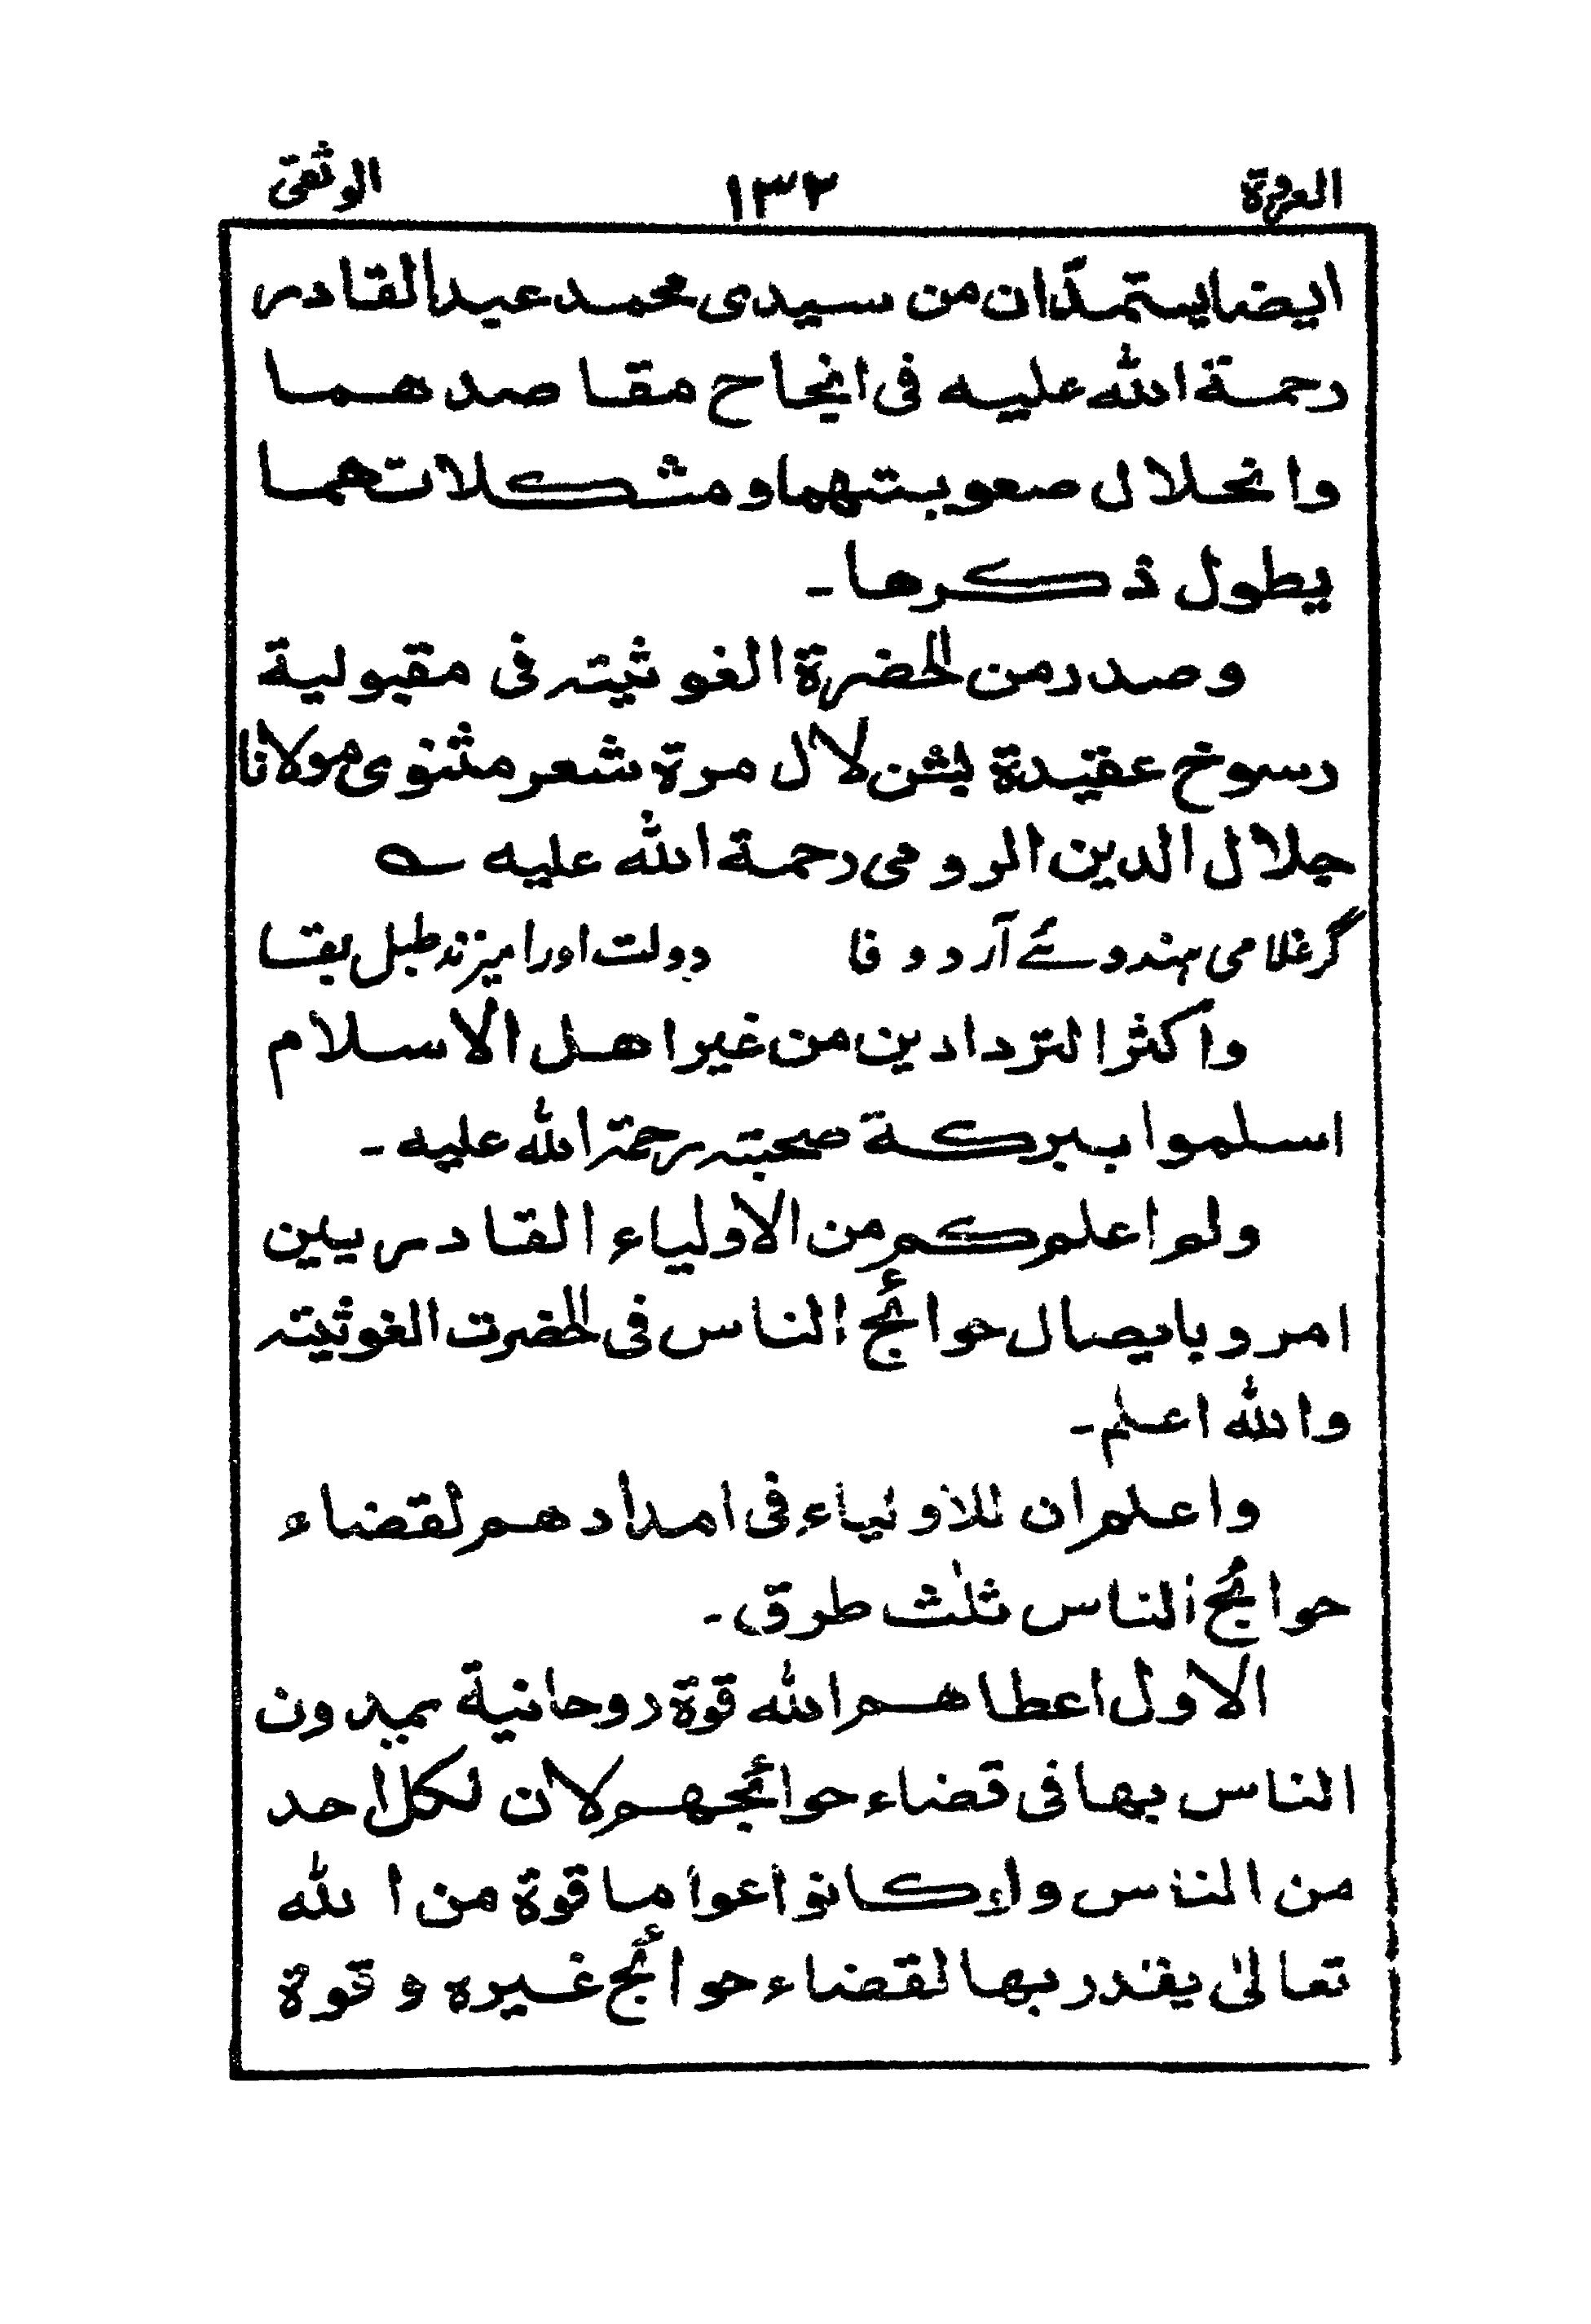 العروة ١٣٢ الوثقى
ايضا يستمدّان من سيدى محمد عبد القادر
رحمة الله عليه فى انجاح مقاصدهما
وانحلال صعوبتهما ومشكلاتهما
يطول ذكرها -
وصدر من الحضرة الغوثيته فى مقبولية
رسوخ عقيدة لال مرة شعر مثنوى مولانا
جلال الدين الرومى رحمة الله عليه ؎
گر غلامی ہندوئے آرد وفا دولت اورا میزند طبل بقا
واكثر التردادين من غير اهل الاسلام
اسلموا ببركة صحبته رحمة الله عليه -
ولم اعلم كم من الاولياء القادريين
امروا بايصال حوائج الناس فى الحضرت الغوثيته
والله اعلم -
واعلم ان للاولياء فى امدادهم لقضاء
حوائج الناس ثلث طرق -
الاول اعطاهم الله قوة روحانية يمدون
الناس بها فى قضاء حوائجهم لان لكل احد
من الناس ولو كانوا عواما قوة من الله
تعالىٰ يقدر بها لقضاء حوائج غيره وقوة